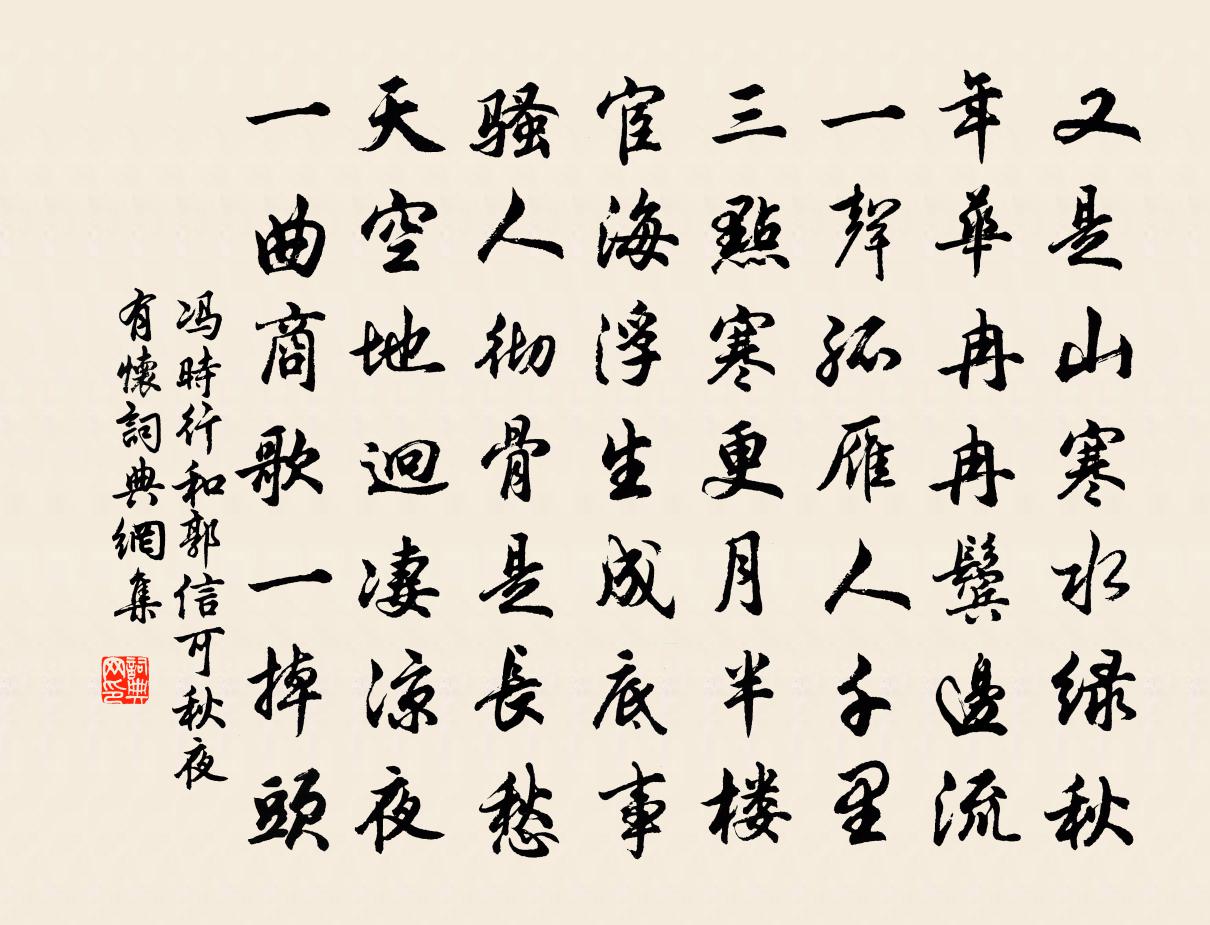 又是山寒水绿秋
年華冉冉鬢邊流
一聲孤雁人千里
三點寒更月半楼
宦海浮生成底事
骚人彻骨是長愁
天空地迥凄涼夜
一曲商歌一掉頭
冯時行和郭信可秋夜
有懷詞典網集
詞典网印